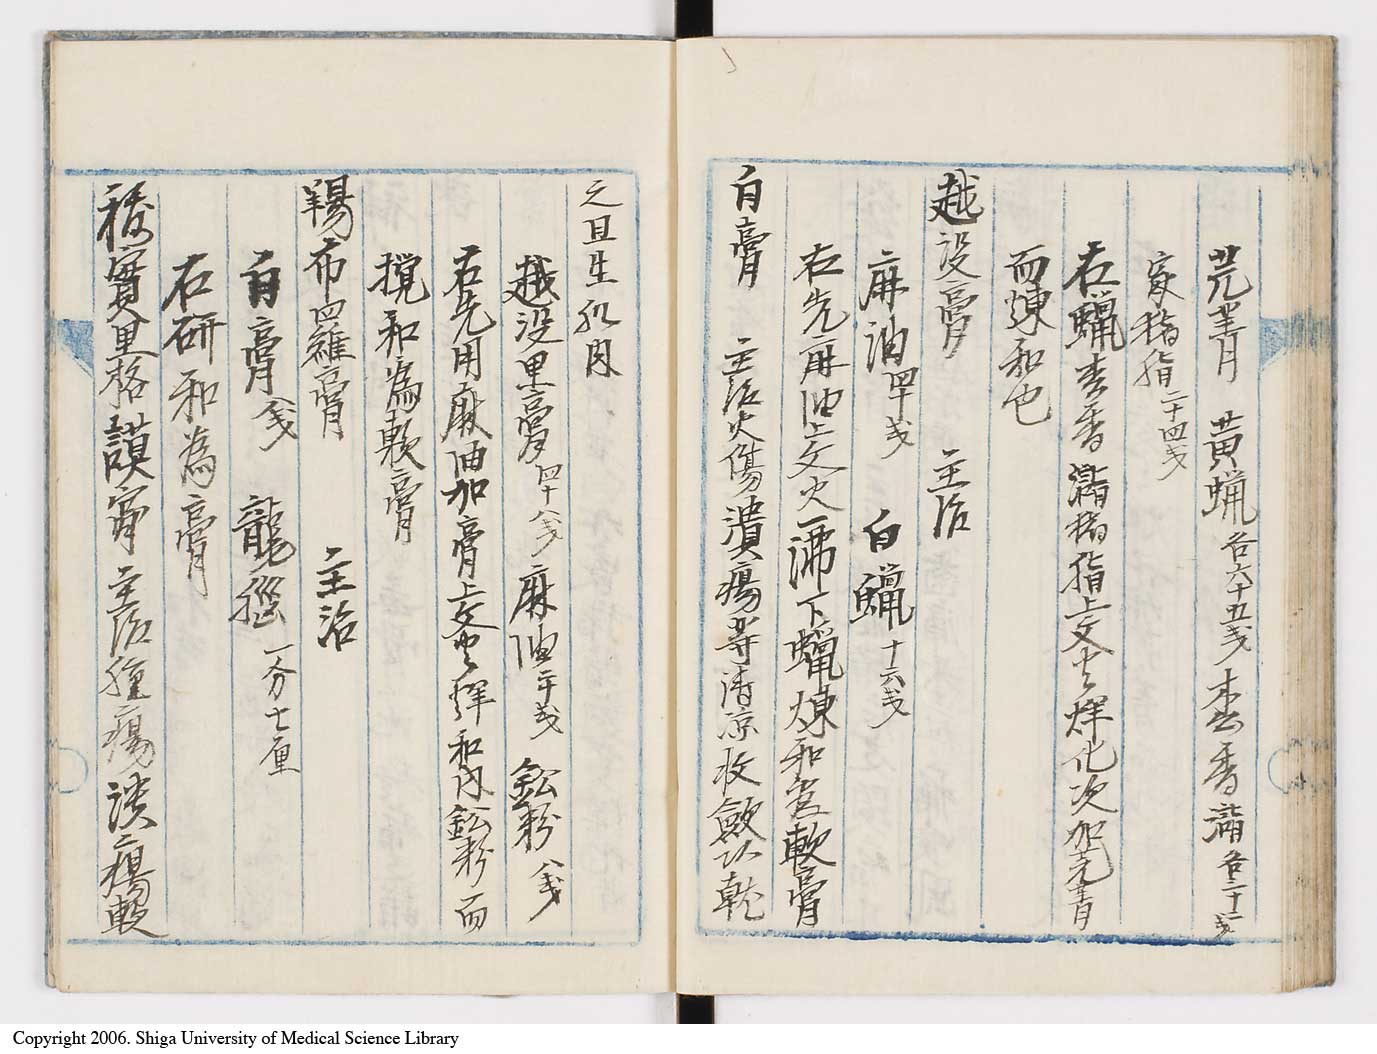 芫菁 黄蝋 各六十五戔 木香 瀝 各二十一戔
家猪脂 二十四戔
右蝋木香瀝猪脂上文火烊化次加芫青
而煉和也
越没膏 主治
麻油 四十戔 白蝋 十六戔
右先麻油上文火一沸下蝋煉和為軟膏
白膏 主治火傷潰瘍等清凉收斂以乾
之且生肌肉
越没里膏 四十八戔 麻油 二十戔 鉛粉 八戔
右先用麻油加膏上文火烊和内鉛粉而
攪和為軟膏
羯布四羅膏 主治
白膏 八戔 龍脳 一分七厘
右研和為膏
揆實里格謨膏主治腫瘍談瘍軟
Copyright 2006. Shiga University of Medical Science Library